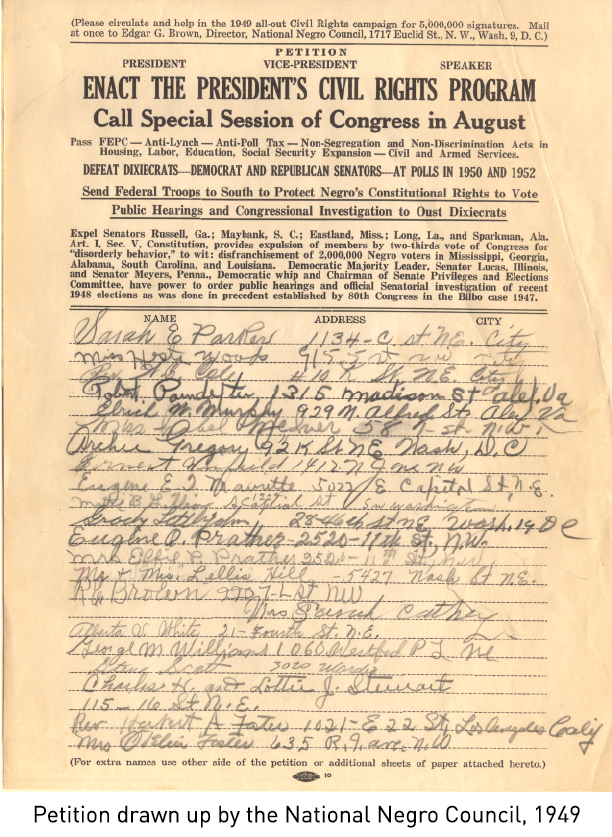 (Please circulate and help in the 1949 all-out Civil Rights campaign for 5,000,000 signatures. Mail
at once to Edgar G. Brown, Director, National Negro Council, 1717 Euclid St., N. W., Wash. 9, D. C.)
PETITION
PRESIDENT VICE-PRESIDENT SPEAKER
ENACT THE PRESIDENT'S CIVIL RIGHTS PROGRAM
Call Special Session of Congress in August
Pass FEPC — Anti-Lynch — Anti-Poll Tax — Non-Segregation and Non-Discrimination Acts in
Housing, Labor, Education, Social Security Expansion — Civil and Armed Services.
DEFEAT DIXIECRATS—DEMOCRAT AND REPUBLICAN SENATORS—AT POLLS IN 1950 AND 1952
Send Federal Troops to South to Protect Negro's Constitutional Rights to Vote
Public Hearings and Congressional Investigation to Oust Dixiecrats
Expel Senators Russell, Ga.; Maybank, S. C.; Eastland, Miss.; Long, La., and Sparkman, Ala.
Art. I, Sec. V. Constitution, provides expulsion of members by two-thirds vote of Congress for
"disorderly behavior," to wit: disfranchisement of 2,000,000 Negro voters in Mississippi, Georgia,
Alabama, South Carolina, and Louisiana. Democratic Majority Leader, Senator Lucas, Illinois,
and Senator Meyers, Penna., Democratic whip and Chairman of Senate Privileges and Elections
Committee, have power to order public hearings and official Senatorial investigation of recent
1948 elections as was done in precedent established by 80th Congress in the Bilbo case 1947.
NAME ADDRESS CITY
Sarah E Parker 1134-C. st NE. City
Miss Woods 915 S st nw City
St. N.E. City
Robt. 1315 Madison St Alex. Va
W. Murphy 929 N. Alfred St. Alex Va
Miss Mabel 58 K st. N.W.
Archie Gregory 921 K St NE Wash, D.C
1412 N
Eugene E. J. 5022 E Capitol St, N.E.
Capitol St Washington
2846th St NE Wash. 19 DC
Eugene P. Prather - 2520-11th St., N.W.
Mrs Effie P Prather 2520-11th St, N.W.
Mr & Mrs. Lellis Hill - 5427 Nash St. N.E.
Brown St NW
Mrs
Alberta V. White 21-Fourth St. N.E.
George M. Williams 1060 Westford P L NE
Scott 3020
Charles H. and Lottie J. Stewart
115-16 St N.E.
Rev Herbert A Foster 1021-E 22 St, Los Angeles
Mrs Foster 635 R.I. ave. N.W
(For extra names use other side of the petition or additional sheets of paper attached hereto.)
10
Petition drawn up by the National Negro Council, 1949